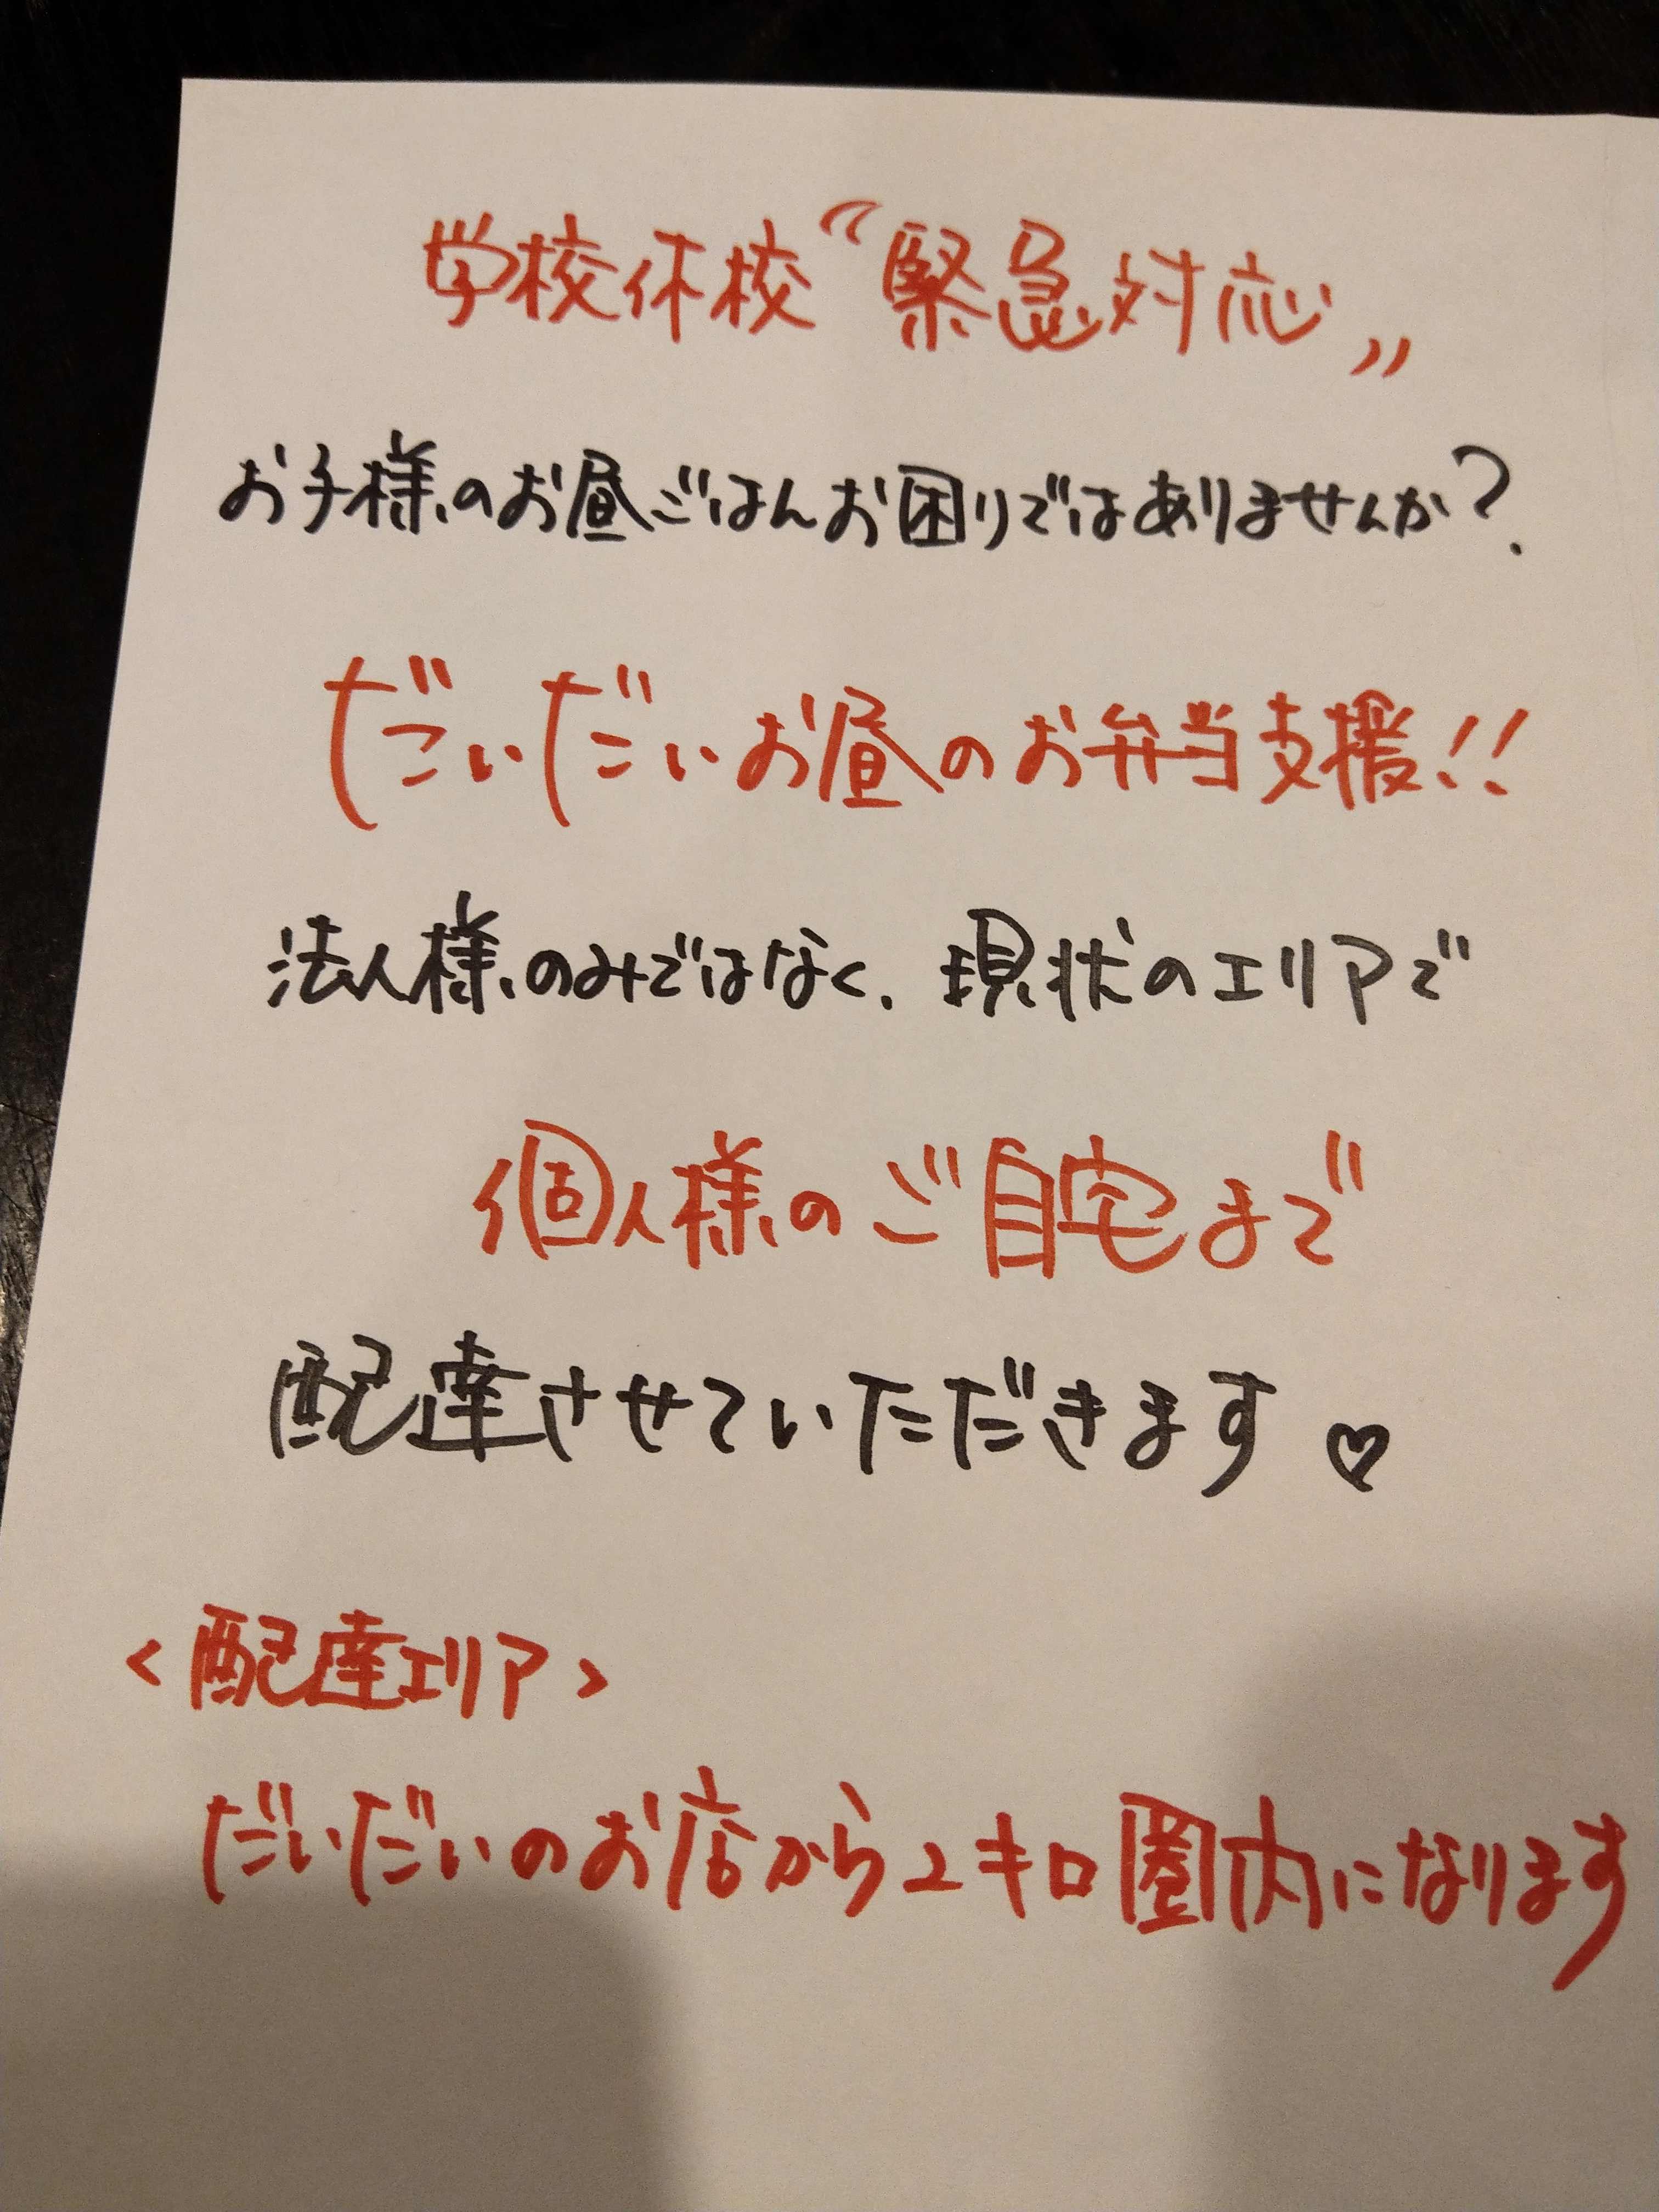 学校休校〝緊急対応〟
お子様のお昼ごはんお困りではありませんか?
だいだいお昼のお弁当支援!!
法人様のみではなく、現状のエリアで
個人様のご自宅まで
配達させていただきます♡
<配達エリア>
だいだいのお店から2キロ圏内になります